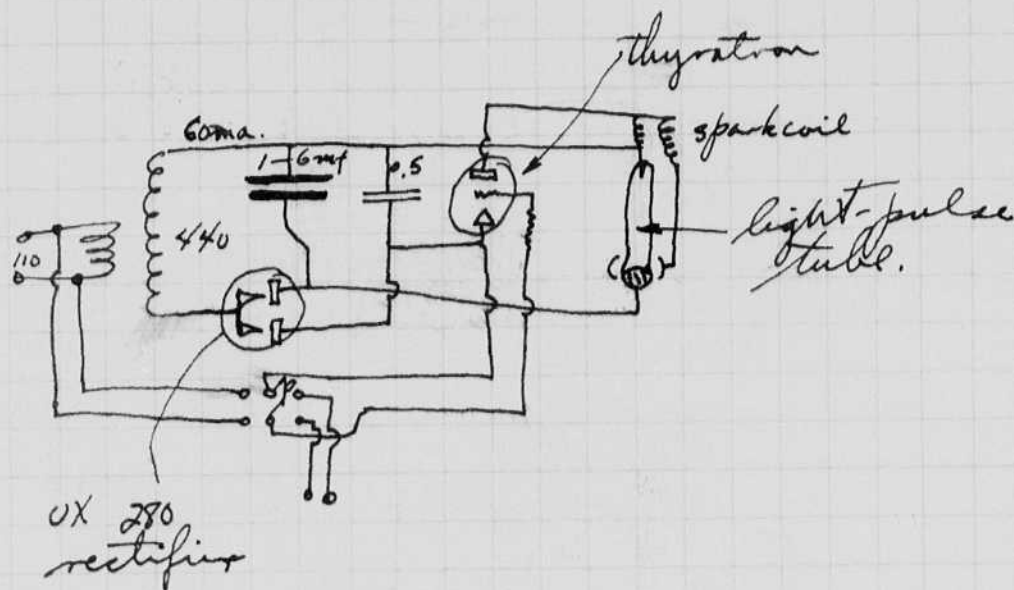 thyratron
60ma.
1-6mf
0.5
sparkcoil
440
110
light-pulse
tube.
UX 280
rectifier